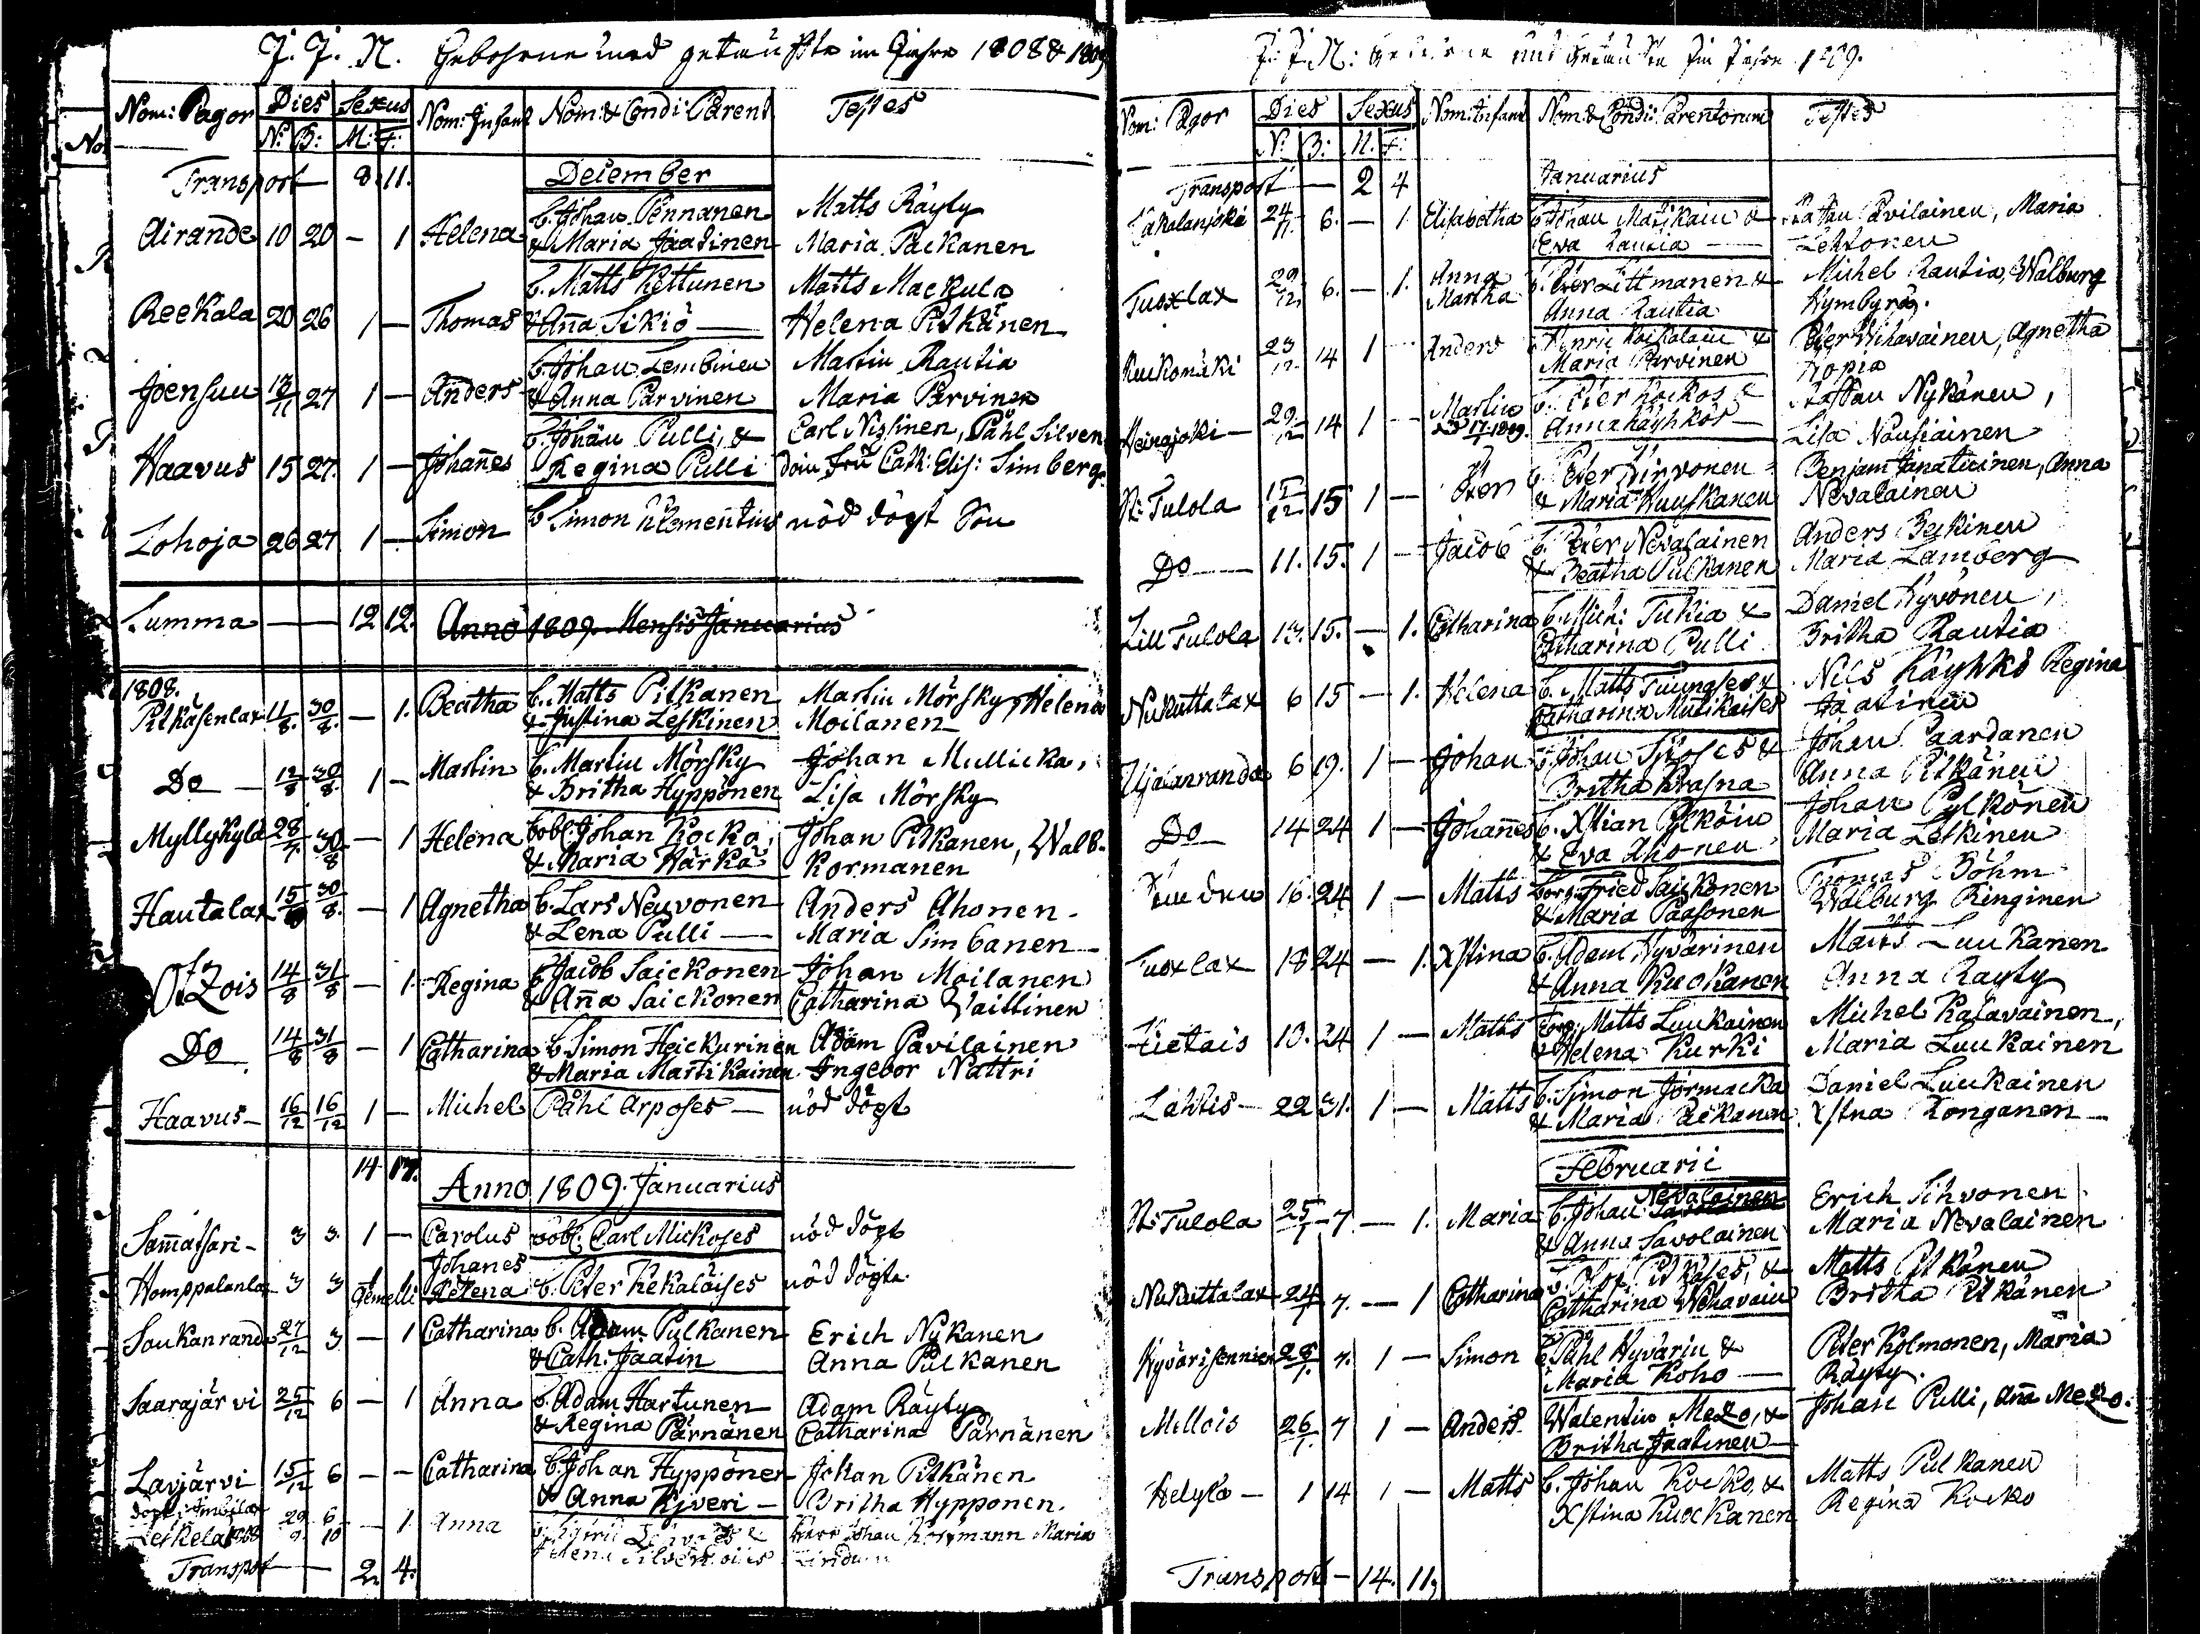 J. J. N. Gebohrne und getaufte im Jahre 1808 & 1809
Nom: Pagor Dies Sexus Nom: Infant Nom: & Condi: Parent Testes
N: B: M: F:
Transport — 8. 11. December
Airande 10 20 — 1 Helena b. Johan Pennanen Matts Räyty
& Maria Jaatinen Maria Packanen
Reekala 20 26 1 — Thomas b. Matts Kettunen Matts Mackula
& Anna Sikiö — Helena Pitkänen
Joensuu 19/11 27 1 — Anders b. Johan Lembinen Martin Rautia
& Anna Parvinen Maria Parvinen
Haavus 15 27. 1 — Johañes b. Johan Pulli, & Carl Nissinen, Påhl Silven
Regina Pulli Cath: Elis: Simberg
Lohoja 26 27 1 — Simon b Simon Klementius nöd döpt Son
Summa — 12 12. Anno 1809. Mensis Januarius
1808.
Pitkäsenlax 11/8. 30/8. — 1. Beatha b. Matts Pitkanen Martin Mörsky, Helena
& Justina Leskinen Moilanen
Do — 12/8 30/8. 1 — Martin b. Martin Mörsky Johan Mullicka,
& Britha Hyppönen Lisa Mörsky
Myllykylä 28/7. 30/8 — 1 Helena bobl: Johan Kocko, Johan Pitkanen, Walb.
& Maria Härkä Kormanen
Hautalax 15/8 30/8. — 1 Agnetha b. Lars Neuvonen Anders Ahonen.
& Lena Pulli — Maria Simbanen
Otzois 14/8 31/8 — 1. Regina b Jacob Saickonen Johan Moilanen
& Aña Saickonen Catharina Waittinen
Do 14/8 31/8 — 1 Catharina b. Simon Heickurinen Adam Pavilainen
& Maria Martikainen Ingebor Nättri
Haavus — 16/12 16/12 1 — Michel Påhl Arposes — nöd döpt
14 17. Anno 1809. Januarius
Samatsari — 3 3. 1 — Carolus bobl: Carl Mickoses nöd döpt
Johanes
Homppalanlax 3 3 1 Gemelli Helena b. Peter Kekaläises nöd döpte
Soukanranda 27/12 3 — 1 Catharina b. Adam Pulkanen Erich Nykanen
& Cath: Jaatin Anna Pulkanen
Saarajärvi 25/12 6 — 1 Anna b. Adam Hartunen Adam Räyty
& Regina Pärnänen Catharina Pärnänen
Lavjärvi 15/12 6 — — Catharina b. Johan Hyppönen Johan Pitkänen
& Anna Kiveri — Britha Hypponen.
Leskelä 1808 29/9 6/10 — 1. Anna
Transport — 2. 4.
J: J: N: Gebohrne und Getaufte Im Jahre 1809.
Nom: Pagor Dies Sexus Nom: Infant Nom: & Condi: Parentorum Testes
N: B: M. F:
Transport — 2 4 Januarius
24/11. 6. — 1. Elisabetha b Johan Matikain & Pavilainen, Maria
Eva Rautia — Lehtonen
Tuoxlax 29/12. 6. — 1. Anna Martha b. Peter Littmanen & Michel Rautia, Walburg
Anna Rautia
Ruckomäki 23/12. 14 1 — Anders b Henric Koikalain & Peter Wihavainen, Agnetha
Maria Parvinen Ropia
Heinajoki — 29/12 14 1 — Martin b. Peter Kockos & Staffan Nykänen,
17/1 1809. Anna Käyhkös — Lisa Nousiainen
St: Tulola 15/12. 15 1 — Peter b. Peter Hirvonen Benjam Janatuinen, Anna
& Maria Kuuskanen Nevalainen
Do — 11. 15. 1 — Jacob b. Peter Nevalainen Anders Beckinen
& Beatha Pulkanen Maria Lamberg
Lill Tulola 13. 15. — 1. Catharina b. Mich: Tukia & Daniel Hyvönen,
Catharina Pulli Britha Rautia
Nukuttalax 6 15 — 1. Helena b. Matts Tuunases & Nils Käyhkö Regina
Catharina Mutikaises Jaatinen
Ujalanranda 6 19. 1 — Johan b. Johan & Johan Paardanen
Britha Krasna Anna Pitkänen
Do 14 24 1 — Johañes b. Xstian Pylköin Johan Pylkönen
& Eva Ahonen Maria Letkinen
16. 24 1 — Matts borg. Fried Saickonen Thomas Böhm
& Maria Paasonen Walburg Ringinen
Tuoxlax 18 24 — 1. Xstina b. Adam Hyvärinen Matts Luukanen
& Anna Kuckanen Anna Rayty
Kietais 13. 24 1 — Matts Torp: Matts Luukainen Michel Kalavainen,
& Helena Kurki Maria Luukainen
Lahtis — 22 31. 1 — Matts b. Simon Jormacka Daniel Luukainen
& Maria Räikanen Xstna Ronganen —
Februarii
St: Tulola 25/1 7 — 1. Maria b. Johan Nevalainen Erich Sihvonen
& Anna Savolainen Maria Nevalainen
Nukuttalax 24/1 7. — 1 Catharina b. Olof Pitkäses, & Matts Pitkänen
Catharina Wihavain Britha Pitkänen
Hyvärisennien 28/1. 7. 1 — Simon b Påhl Hyvärin & Peter Kolmonen, Maria
Maria Koho — Räyty.
Mellois 26/1. 7 1 — Anders Walentin Mezo, & Johan Pulli, Aña Mezo.
Britha Jaatinen —
Helylä — 1 14 1 — Matts b. Johan Kocko, & Matts Pulkanen
Xstina Kuckanen Regina Kocko
Transport — 14. 11,